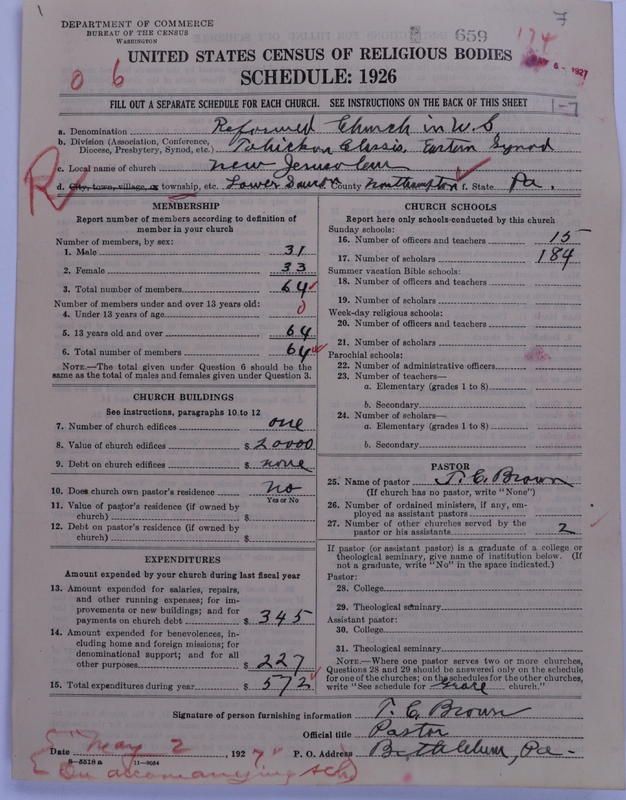 7
DEPARTMENT OF COMMERCE
BUREAU OF THE CENSUS
WASHINGTON
659
174
6 - 1927
UNITED STATES CENSUS OF RELIGIOUS BODIES
0 6
SCHEDULE: 1926
FILL OUT A SEPARATE SCHEDULE FOR EACH CHURCH. SEE INSTRUCTIONS ON THE BACK OF THIS SHEET
1-7
a. Denomination Reformed Church in U.S
b. Division (Association, Conference, Diocese, Presbytery, Synod, etc.) Tohickon Classis, Eastern Synod
c. Local name of church New Jerusalem
R
d. City, town, village, or township, etc. Lower Saucon e. County Northampton f. State Pa.
MEMBERSHIP
Report number of members according to definition of
member in your church
Number of members, by sex:
1. Male 31
2. Female 33
3. Total number of members 64
Number of members under and over 13 years old:
4. Under 13 years of age 0
5. 13 years old and over 64
6. Total number of members 64
NOTE.—The total given under Question 6 should be the
same as the total of males and females given under Question 3.
CHURCH BUILDINGS
See instructions, paragraphs 10 to 12
7. Number of church edifices one
8. Value of church edifices $ 20000
9. Debt on church edifices $ none
10. Does church own pastor's residence No
Yes or No
11. Value of pastor's residence (if owned by
church) $
12. Debt on pastor's residence (if owned by
church) $
EXPENDITURES
Amount expended by your church during last fiscal year
13. Amount expended for salaries, repairs,
and other running expenses; for im-
provements or new buildings; and for
payments on church debt $ 345
14. Amount expended for benevolences, in-
cluding home and foreign missions; for
denominational support; and for all
other purposes $ 227
15. Total expenditures during year $ 572
CHURCH SCHOOLS
Report here only schools conducted by this church
Sunday schools:
16. Number of officers and teachers 15
17. Number of scholars 184
Summer vacation Bible schools:
18. Number of officers and teachers
19. Number of scholars
Week-day religious schools:
20. Number of officers and teachers
21. Number of scholars
Parochial schools:
22. Number of administrative officers
23. Number of teachers—
a. Elementary (grades 1 to 8)
b. Secondary
24. Number of scholars—
a. Elementary (grades 1 to 8)
b. Secondary
PASTOR
25. Name of pastor T. C. Brown
(If church has no pastor, write "None")
26. Number of ordained ministers, if any, em-
ployed as assistant pastors
27. Number of other churches served by the
pastor or his assistants 2
If pastor (or assistant pastor) is a graduate of a college or
theological seminary, give name of institution below. (If
not a graduate, write "No" in the space indicated.)
Pastor:
28. College
29. Theological seminary
Assistant pastor:
30. College
31. Theological seminary
NOTE.—Where one pastor serves two or more churches,
Questions 28 and 29 should be answered only on the schedule
for one of the churches; on the schedules for the other churches,
write "See schedule for Grace church."
Signature of person furnishing information T. C. Brown
Official title Pastor
Date May 2, 1927 P. O. Address Bethlehem, Pa-
8-5518 a 11-9054
On accomanying sch